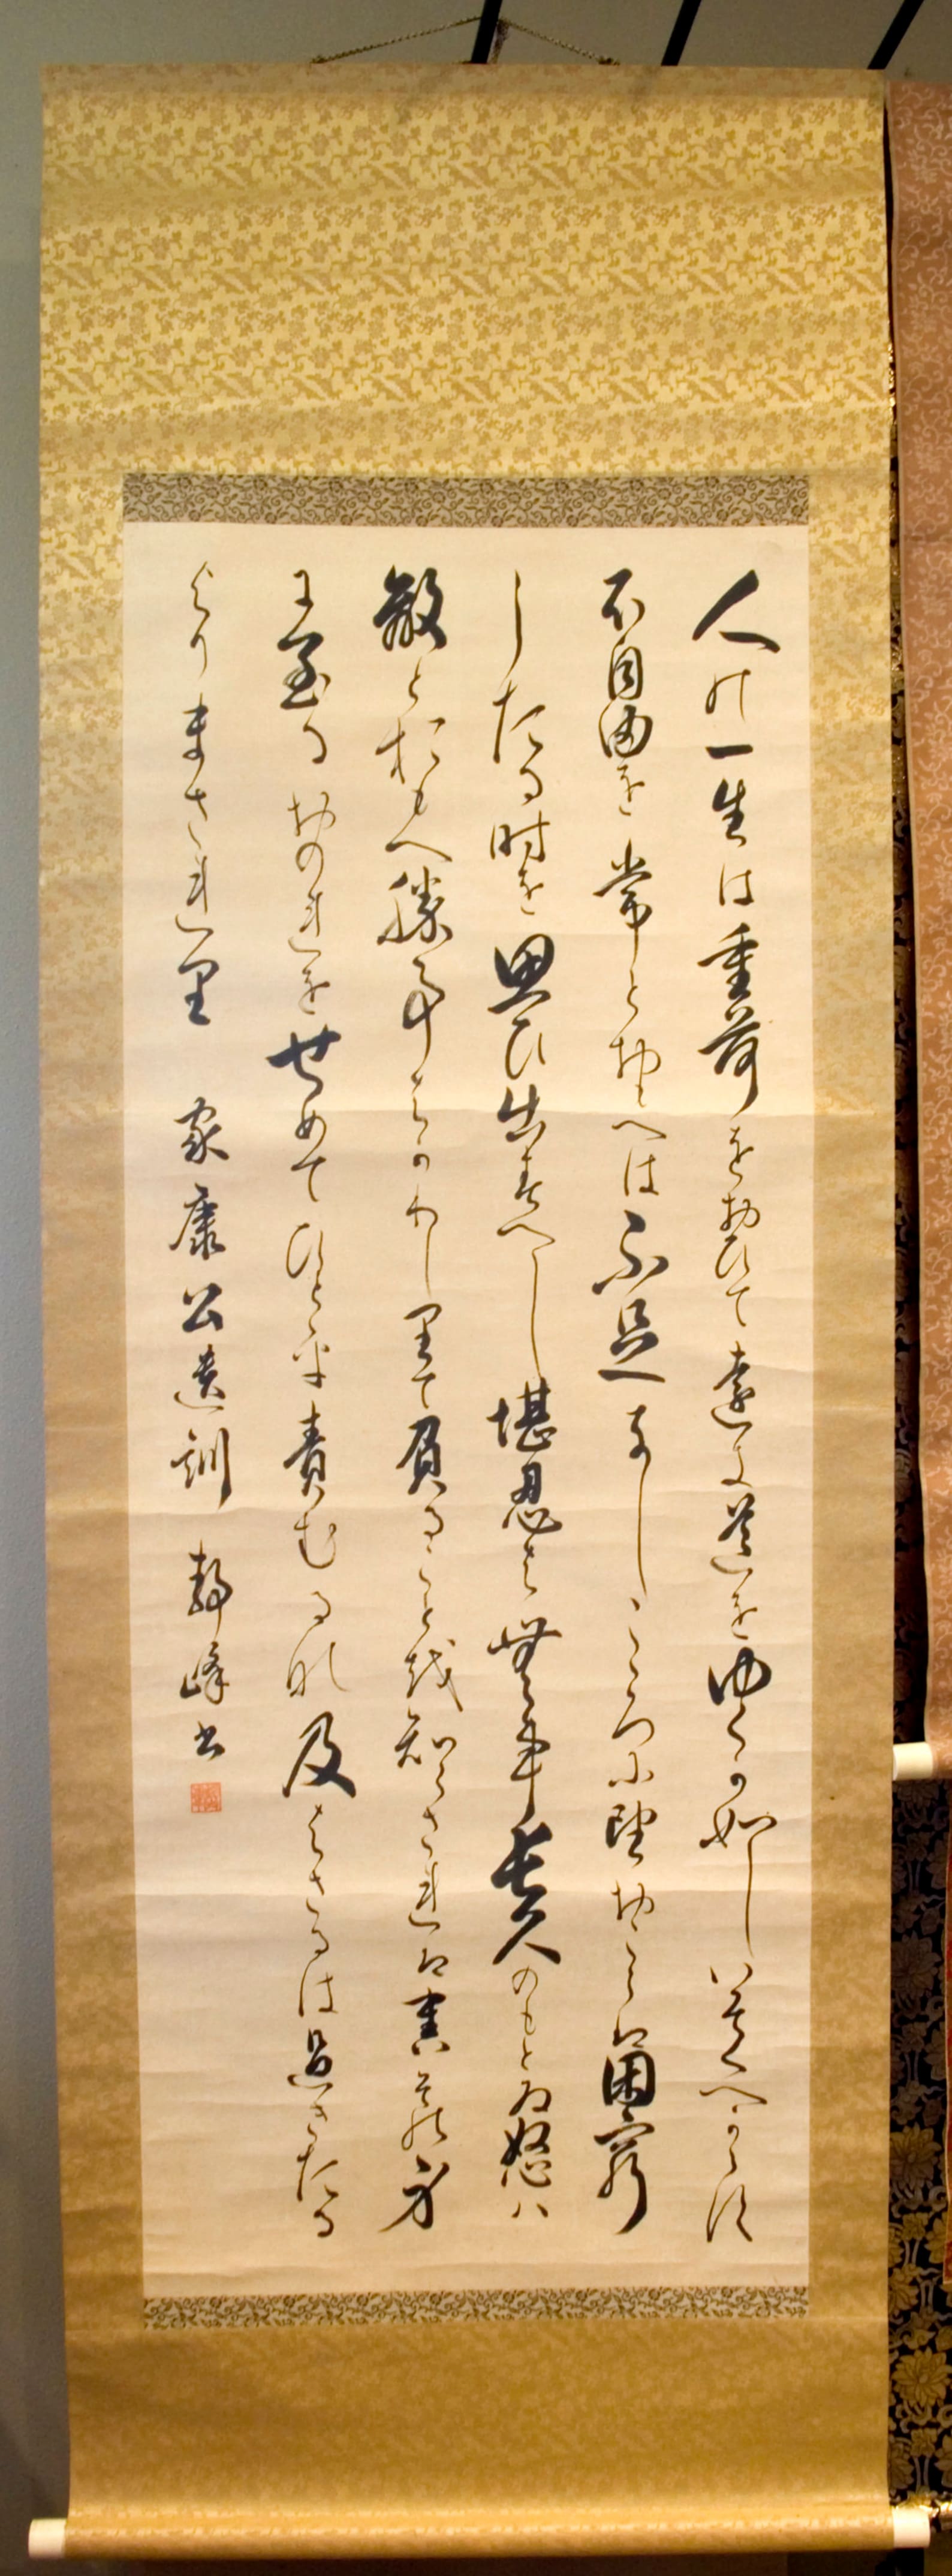 人の一生は重荷をおひて遠き道をゆくか如しいそくへからす
不自由を常とおもへは不足なしこころに望おこらは困窮
したる時を思ひ出すへし堪忍は無事長久のもとゐ怒ハ
敵とおもへ勝事はかりしりて負ることを知らされは害その身
に至るおのれをせめてひとを責むるな及はさるは過きたる
よりまされり 家康公遺訓 静峰書